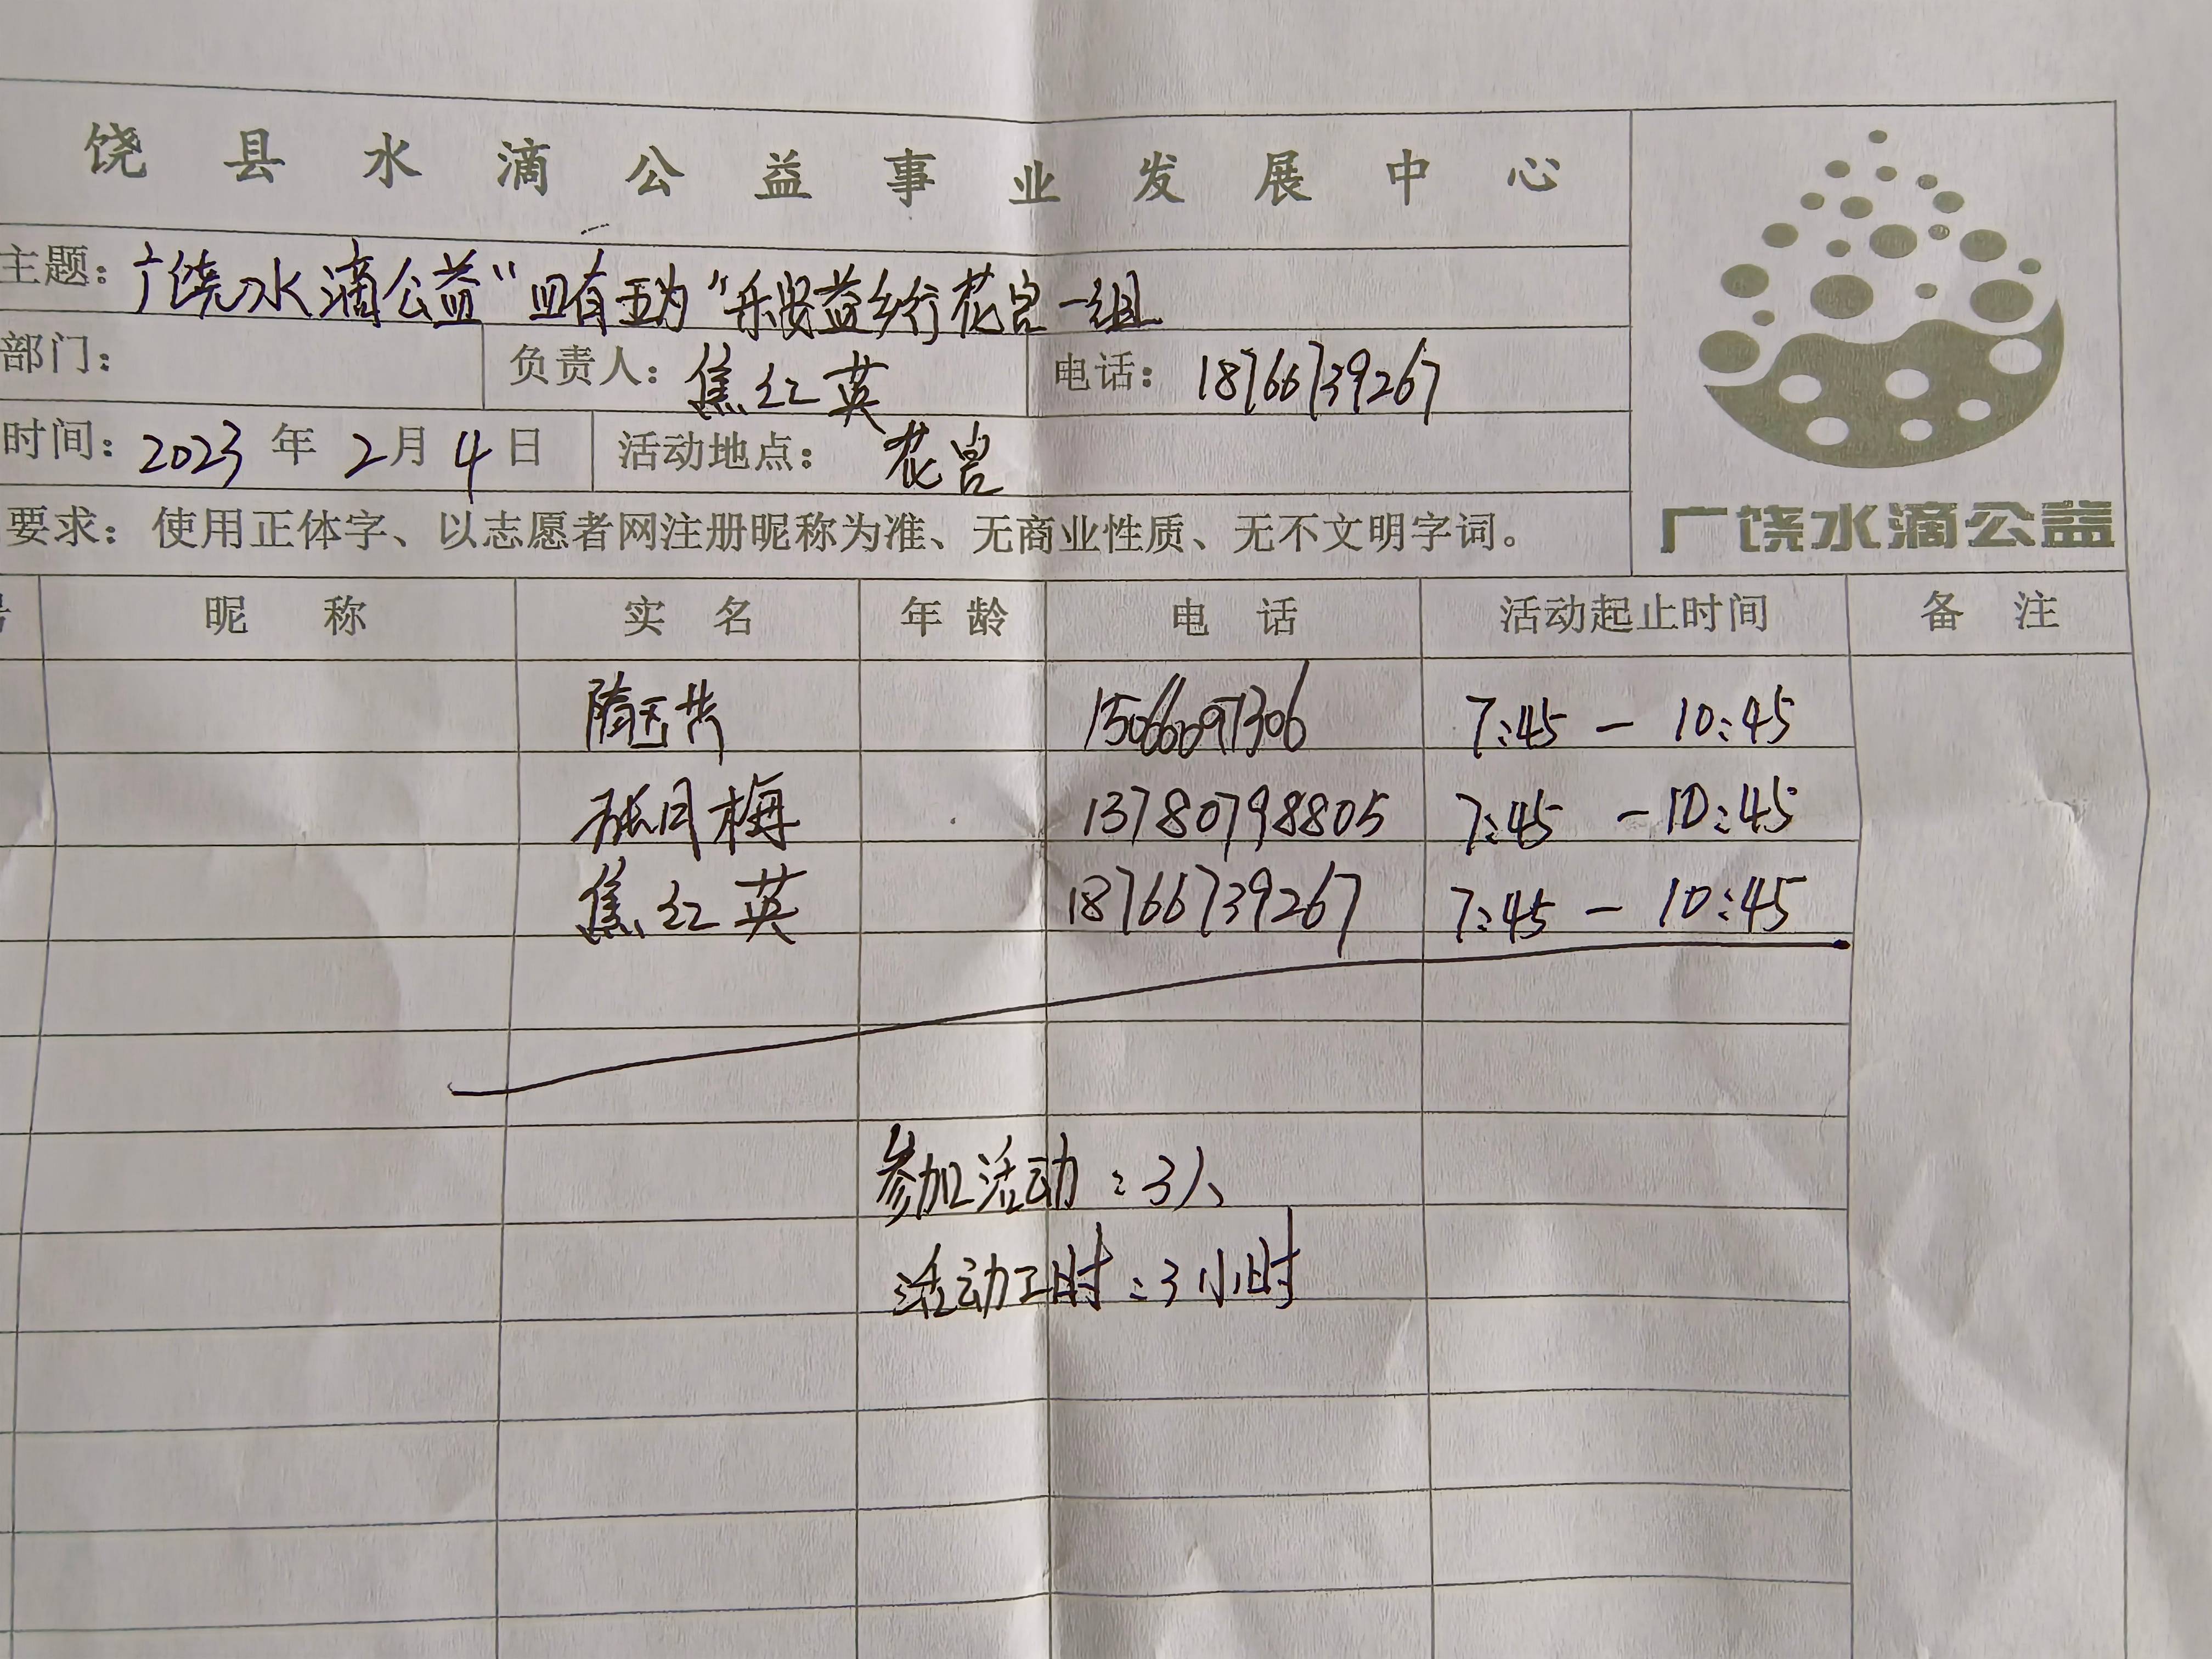 饶县水滴公益事业发展中心
主题：广饶水滴公益“四有五为”乐安益乡行花官一组
部门： 负责人：焦红英 电话：18766739267
时间：2023年2月4日 活动地点：花官
要求：使用正体字、以志愿者网注册昵称为准、无商业性质、无不文明字词。
广饶水滴公益
号 昵称 实名 年龄 电话 活动起止时间 备注
15066097306 7:45 — 10:45
张月梅 13780798805 7:45 — 10:45
焦红英 18766739267 7:45 — 10:45
参加活动：3人
活动工时：3小时